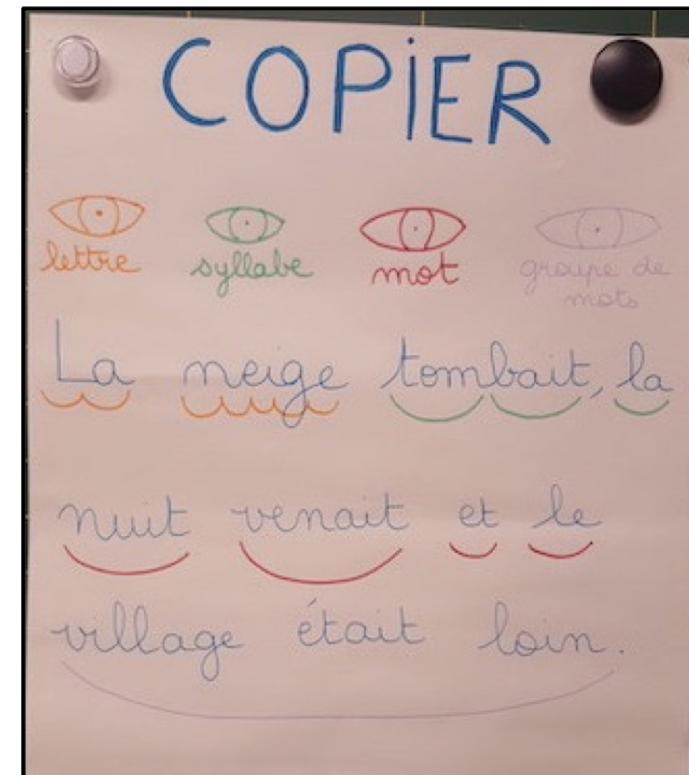 COPiER
lettre syllabe mot groupe de
mots
La neige tombait, la
nuit venait et le
village était loin.